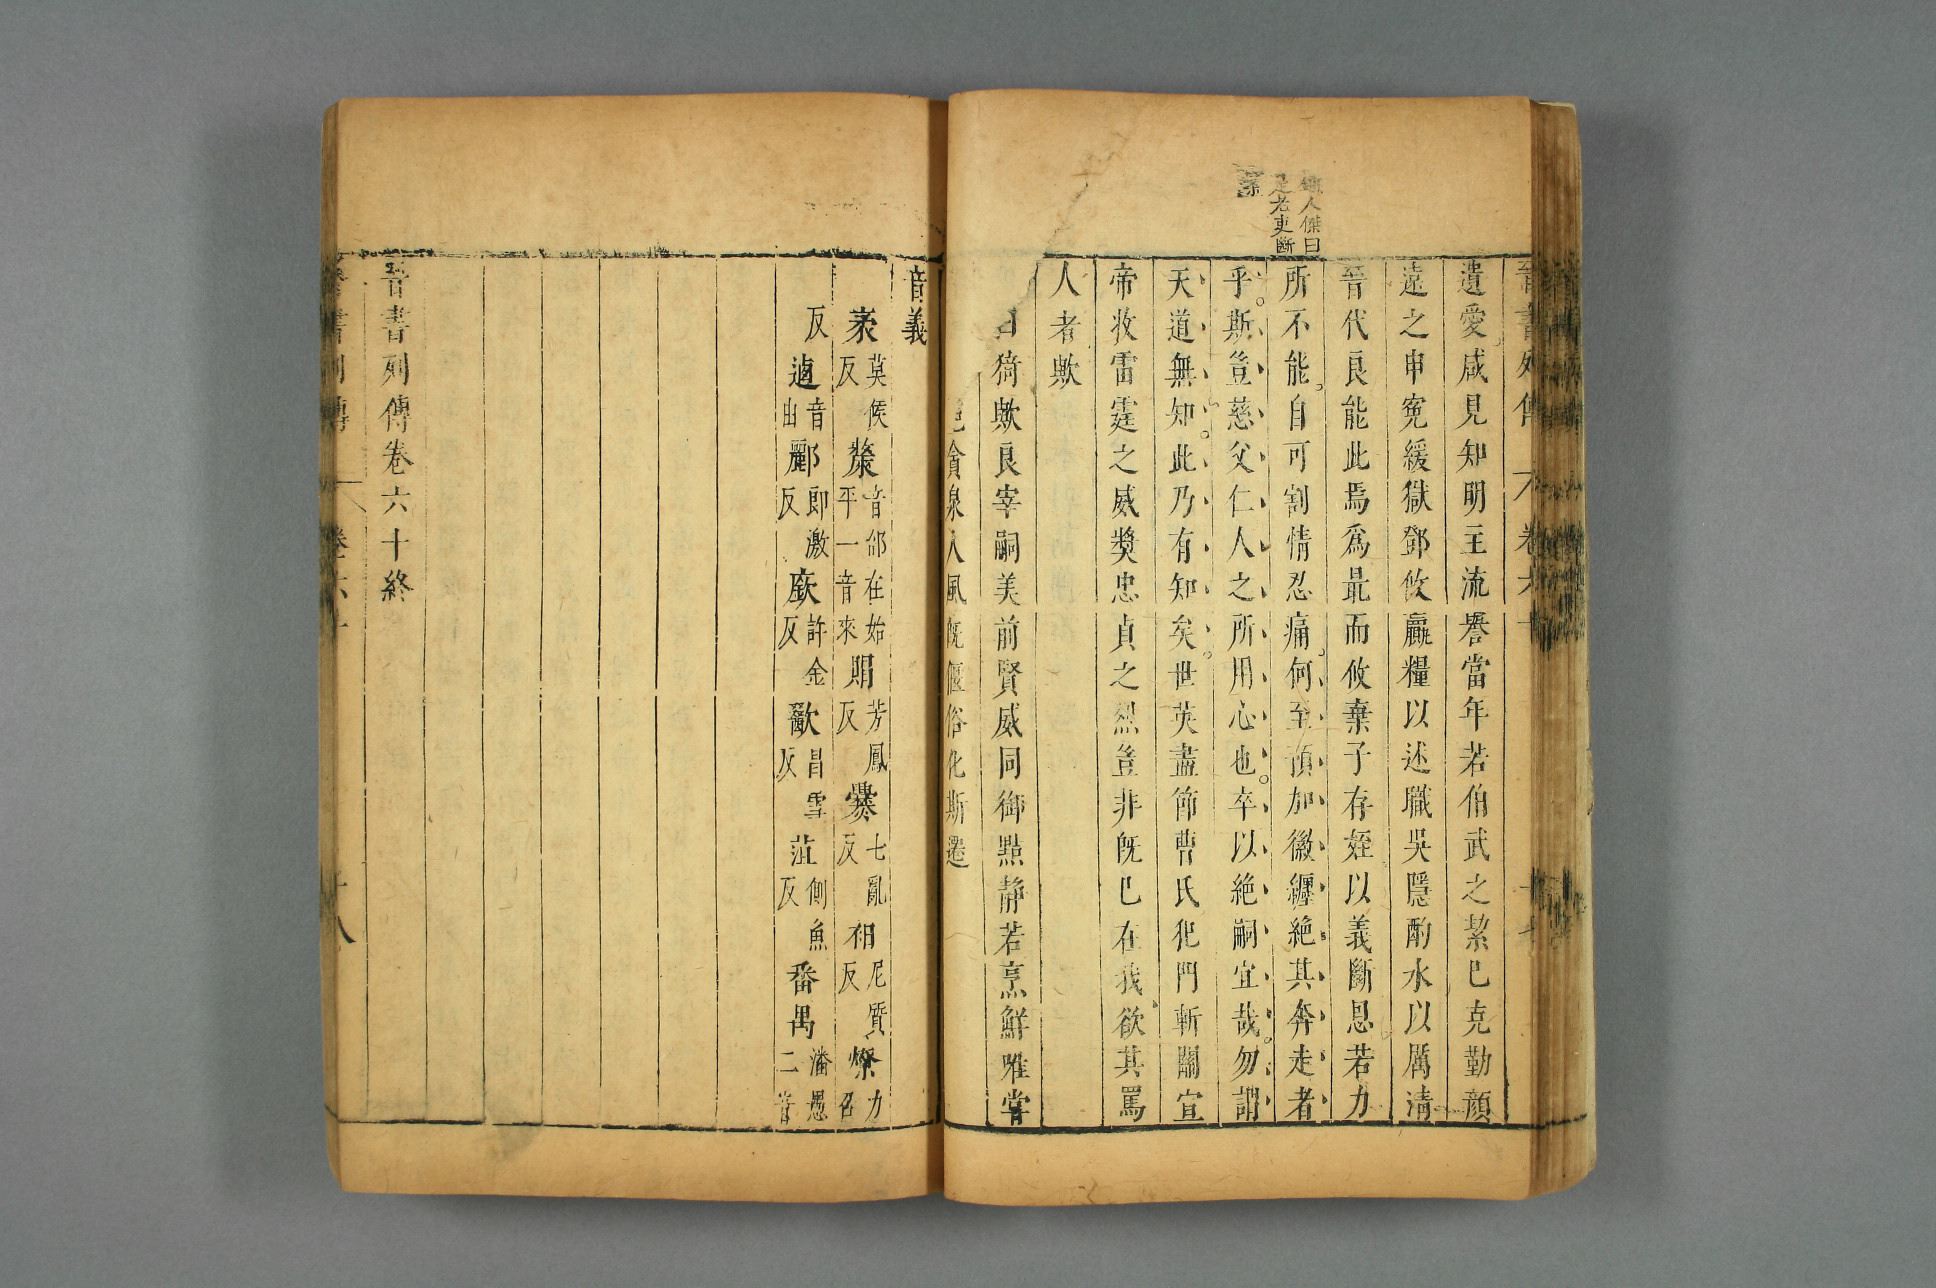 人傑曰
是老吏斷
案
遺愛咸見知明主流譽當年若伯武之絜已克勤顔
遠之申寃緩獄鄧攸嬴糧以述職吳隱酌水以厲清
晉代良能此焉爲最而攸棄子存姪以義斷恩若力
所不能自可割情忍痛何至預加徽纆絶其奔走者
乎斯豈慈父仁人之所用心也卒以絶嗣宜哉勿謂
天道無知此乃有知矣世英盡節曹氏犯門斬關宣
帝收雷霆之威奬忠貞之烈豈非旣已在我欲其罵
人者歟
曰猗歟良宰嗣美前賢威同御黠静若烹鮮唯嘗
貪泉人風旣偃俗化斯遷
音義
袤莫侯反 漦音邰在始平一音來 賵芳鳳反 爨七亂反 衵尼質反 燎力召
反 逌音由 酈郎激反 廞許金反 歠昌雪反 菹側魚反 番禺潘愚二音
晉書列傳卷六十終
晉書列傳
卷六十
十八